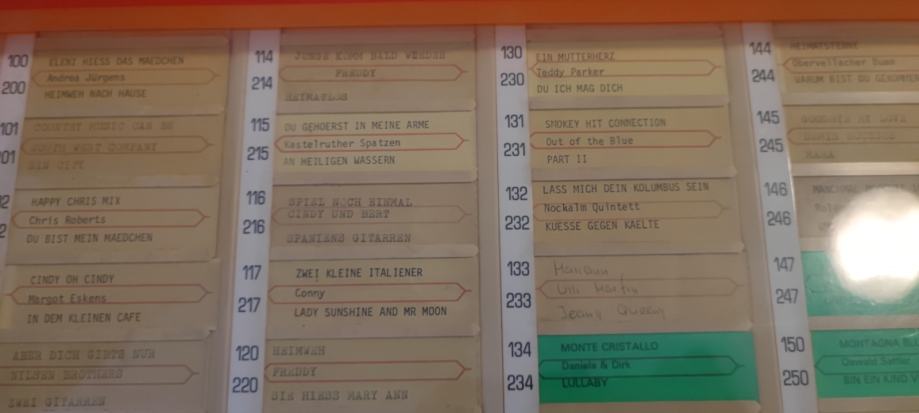 100
200
ELENI HIESS DAS MAEDCHEN
Andrea Jürgens
HEIMWEH NACH HAUSE
101
01
COUNTRY MUSIC CAN BE
SOUTH WEST COMPANY
SIN CITY
2
2
HAPPY CHRIS MIX
Chris Roberts
DU BIST MEIN MAEDCHEN
CINDY OH CINDY
Margot Eskens
IN DEM KLEINEN CAFE
ABER DICH GIBTS NUR
NILSEN BROTHERS
ZWEI GITARREN
114
214
JUNGE KOMM BALD WIEDER
FREDDY
HEIMATLOS
115
215
DU GEHOERST IN MEINE ARME
Kastelruther Spatzen
AN HEILIGEN WASSERN
116
216
SPIEL NOCH EINMAL
CINDY UND BERT
SPANIENS GITARREN
117
217
ZWEI KLEINE ITALIENER
Conny
LADY SUNSHINE AND MR MOON
120
220
HEIMWEH
FREDDY
SIE HIESS MARY ANN
130
230
EIN MUTTERHERZ
Teddy Parker
DU ICH MAG DICH
131
231
SMOKEY HIT CONNECTION
Out of the Blue
PART II
132
232
LASS MICH DEIN KOLUMBUS SEIN
Nockalm Quintett
KUESSE GEGEN KAELTE
133
233
Ulli Martin
134
234
MONTE CRISTALLO
Daniela & Dirk
LULLABY
144
244
HEIMATSTERNE
Obervellacher Buam
WARUM BIST DU
145
245
GOODBYE MY LOVE
DEMIS ROUSSOS
146
246
147
247
150
250
MONTAGNA
Oswald Sattler
BIN EIN KIND